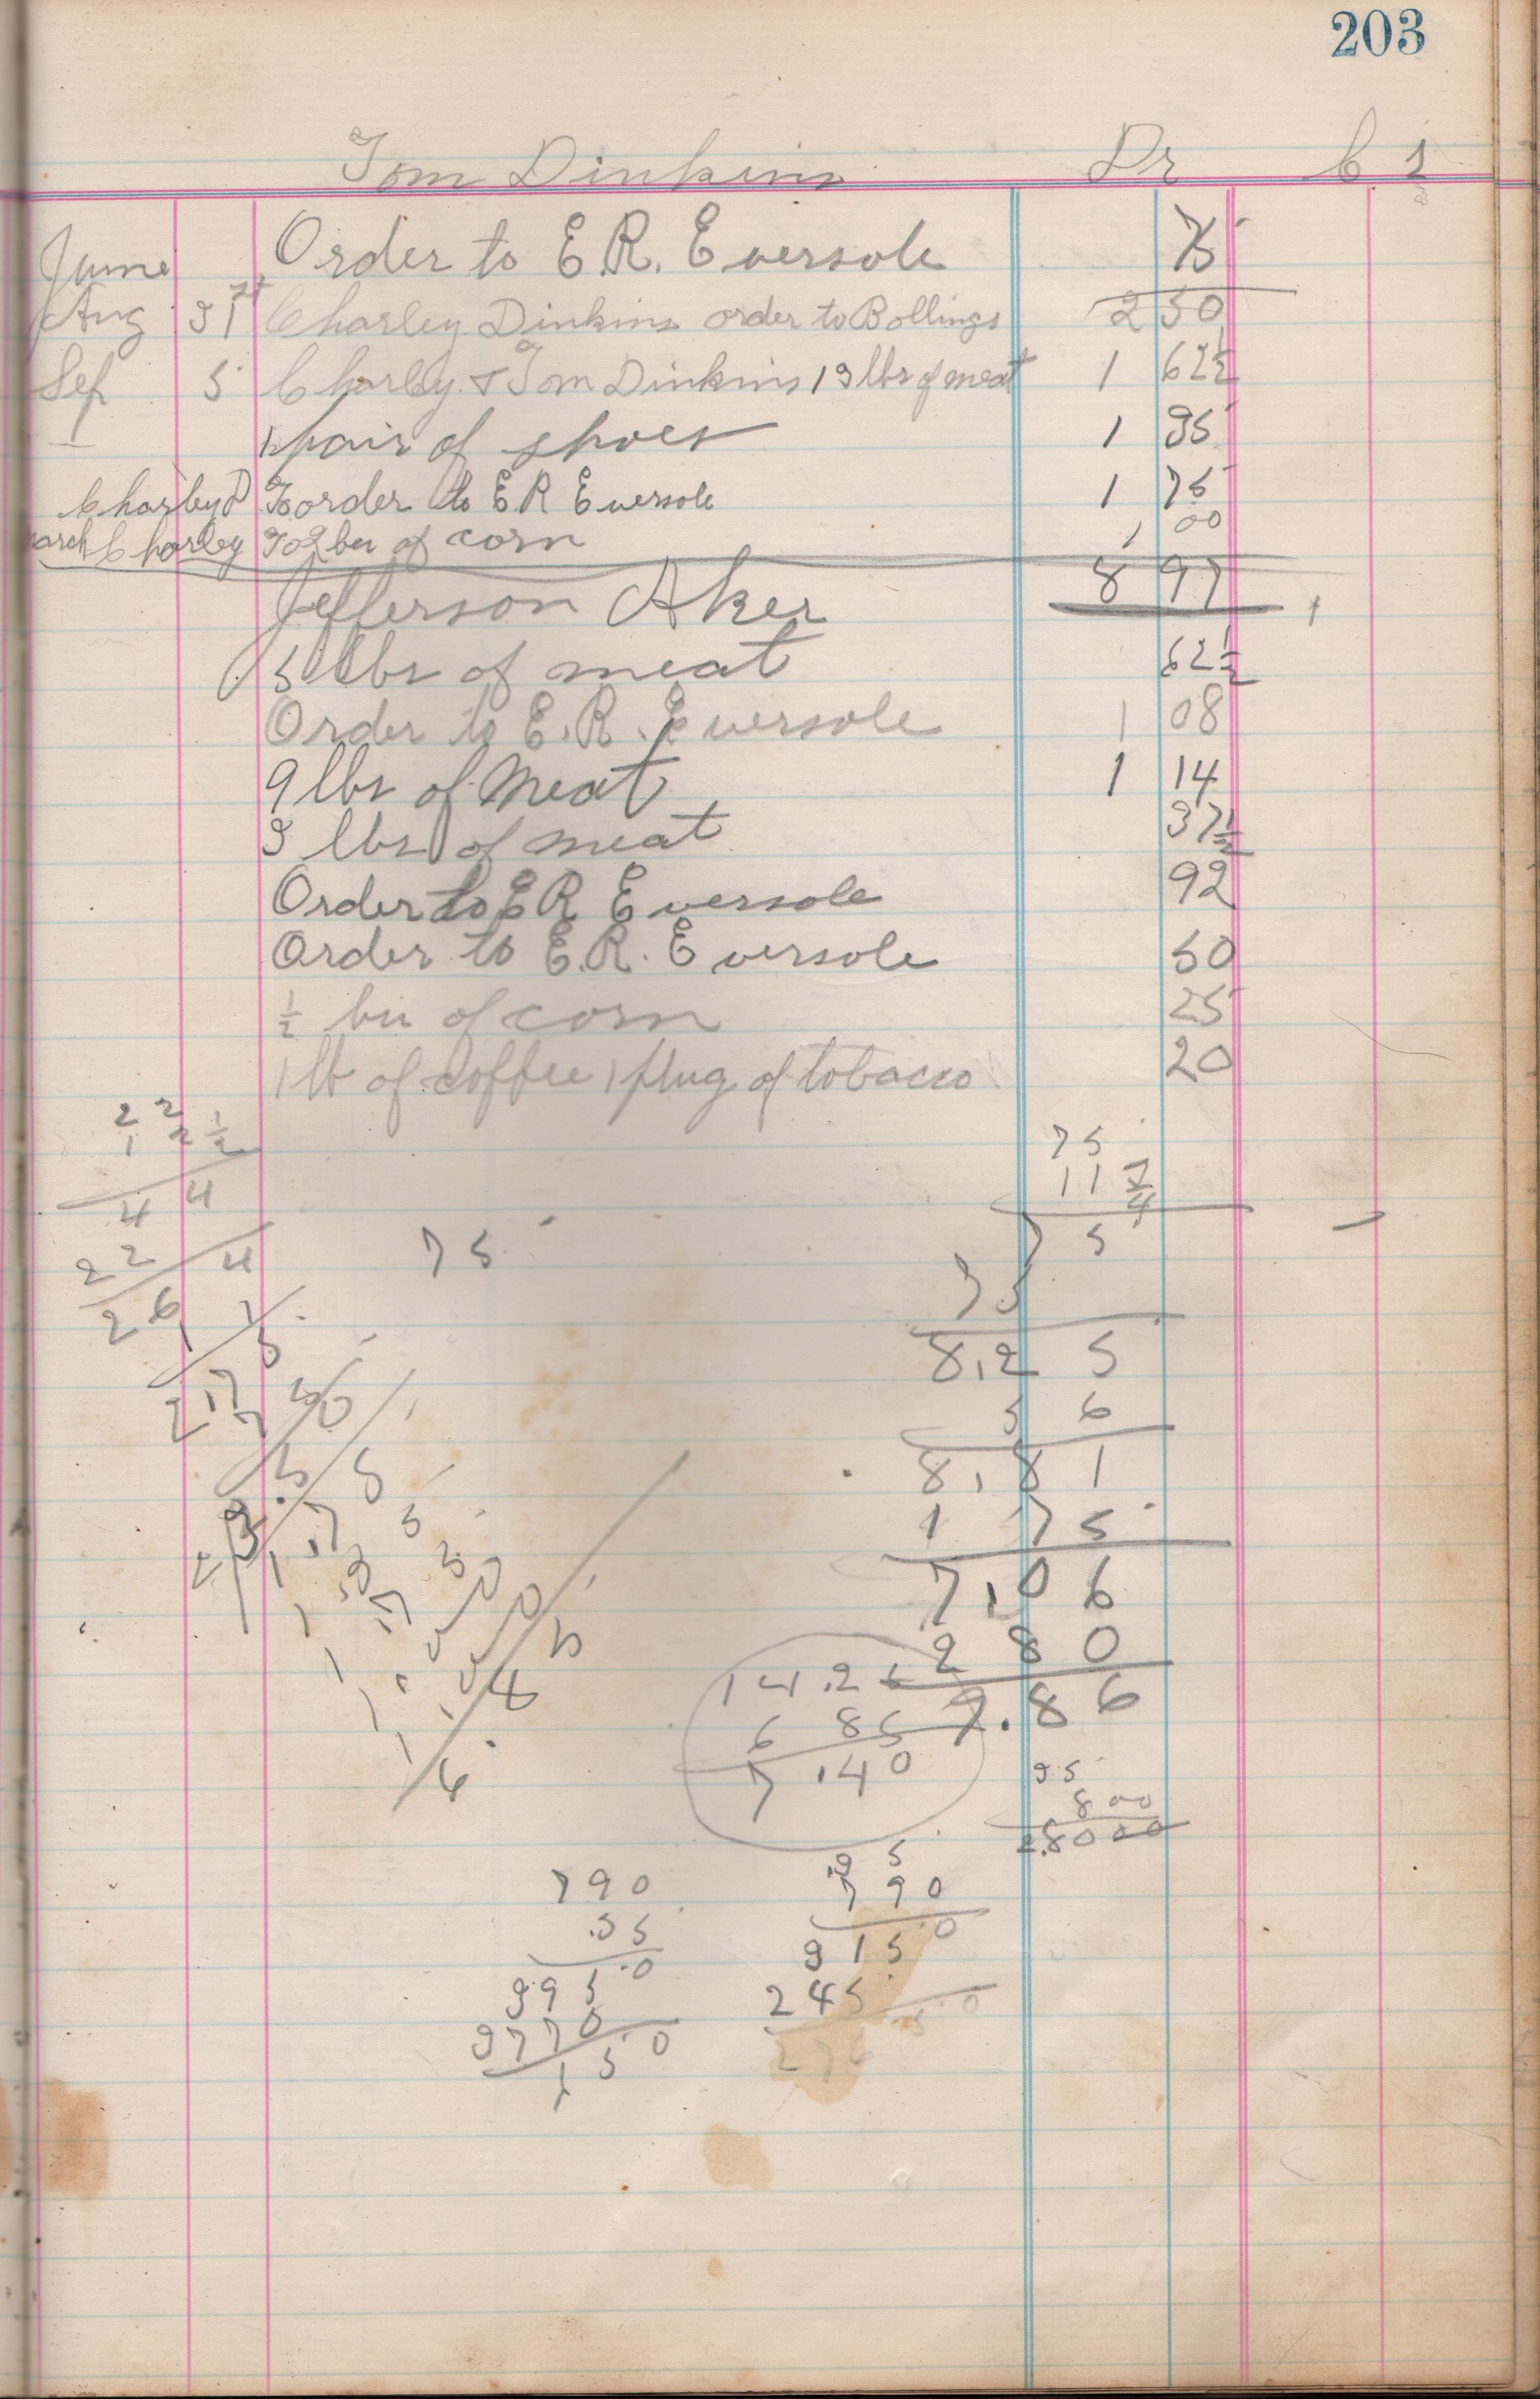 203
Tom Dinkins Dr C
June Order to E.R. Eversole 75
Aug 31st Charley Dinkins order to Bollings 2 50
Sep 5 Charley & Tom Dinkins 13 lbs of meat 1 62½
1 pair of shoes 1 35
Charley D To order to E R Eversole 1 75
March Charley To 2 bu of corn 1 00
8 97
Jefferson Aker
5 lbs of meat 62½
Order to E.R. Eversole 1 08
9 lbs of Meat 1 14
3 lbs of meat 37½
Order to E R Eversole 92
Order to E.R. Eversole 50
½ bu of corn 25
1 lb of coffee 1 plug of tobacco 20
2 2
1 2 ½
4 4
22 4
26
75
75
11
75
75
8,25
56
8,81
1 75
7,06
2 80
9.86
14.25
6 85
7,40
35
800
28000
790
.35
395.0
35
790
315.0
245